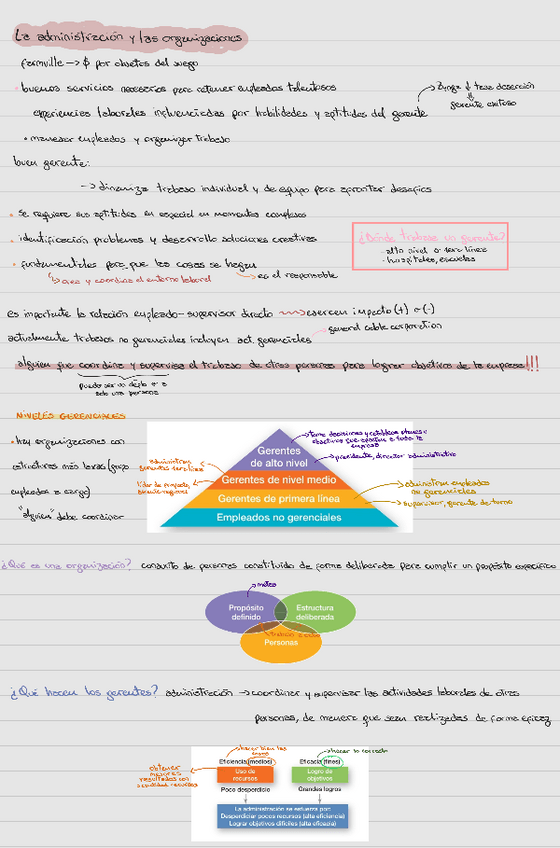 La administración y las organizaciones
farmville -> $ por objetos del juego
buenos servicios necesarios para retener empleados talentosos
Zynga ↓ tasa deserción
gerente exitoso
experiencias laborales influenciadas por habilidades y aptitudes del gerente
• manejar empleados y organizar trabajo
buen gerente:
-> dinamiza trabajo individual y de equipo para afrontar desafíos
• se requiere sus aptitudes en especial en momentos complejos
• identificación problemas y desarrollo soluciones creativas
• fundamentales para que las cosas se hagan
crea y coordina el entorno laboral
es el responsable
¿Dónde trabaja un gerente?
- alto nivel o 1era línea
- hospitales, escuelas
es importante la relación empleado-supervisor directo ejercen impacto (+) o (-)
actualmente trabajos no gerenciales incluyen act. gerenciales
general cable corporation
alguien que coordina y supervisa el trabajo de otras personas para lograr objetivos de la empresa!!!
puede ser un depto o a
solo una persona
NIVELES GERENCIALES
• hay organizaciones con
estructuras más laxas (pocos
empleados a cargo)
"alguien" debe coordinar
Gerentes
de alto nivel
Gerentes de nivel medio
Gerentes de primera línea
Empleados no gerenciales
toma decisiones y establece planes y
objetivos que afectan a toda la
empresa
presidente, director administrativo
administran
gerentes 1era línea
líder de proyecto,
gerente regional
administran empleados
no gerenciales
supervisor, gerente de turno
¿Qué es una organización? conjunto de personas constituido de forma deliberada para cumplir un propósito específico
metas
Propósito
definido
Estructura
deliberada
Personas
¿Qué hacen los gerentes? administración -> coordinar y supervisar las actividades laborales de otras
personas, de manera que sean realizadas de forma eficaz
hacer bien las
cosas
hacer lo correcto
Eficiencia (medios)
Eficacia (fines)
obtener
mejores
resultados con
Uso de
recursos
Logro de
objetivos
Poco desperdicio
Grandes logros
La administración se esfuerza por:
Desperdiciar pocos recursos (alta eficiencia)
Lograr objetivos difíciles (alta eficacia)